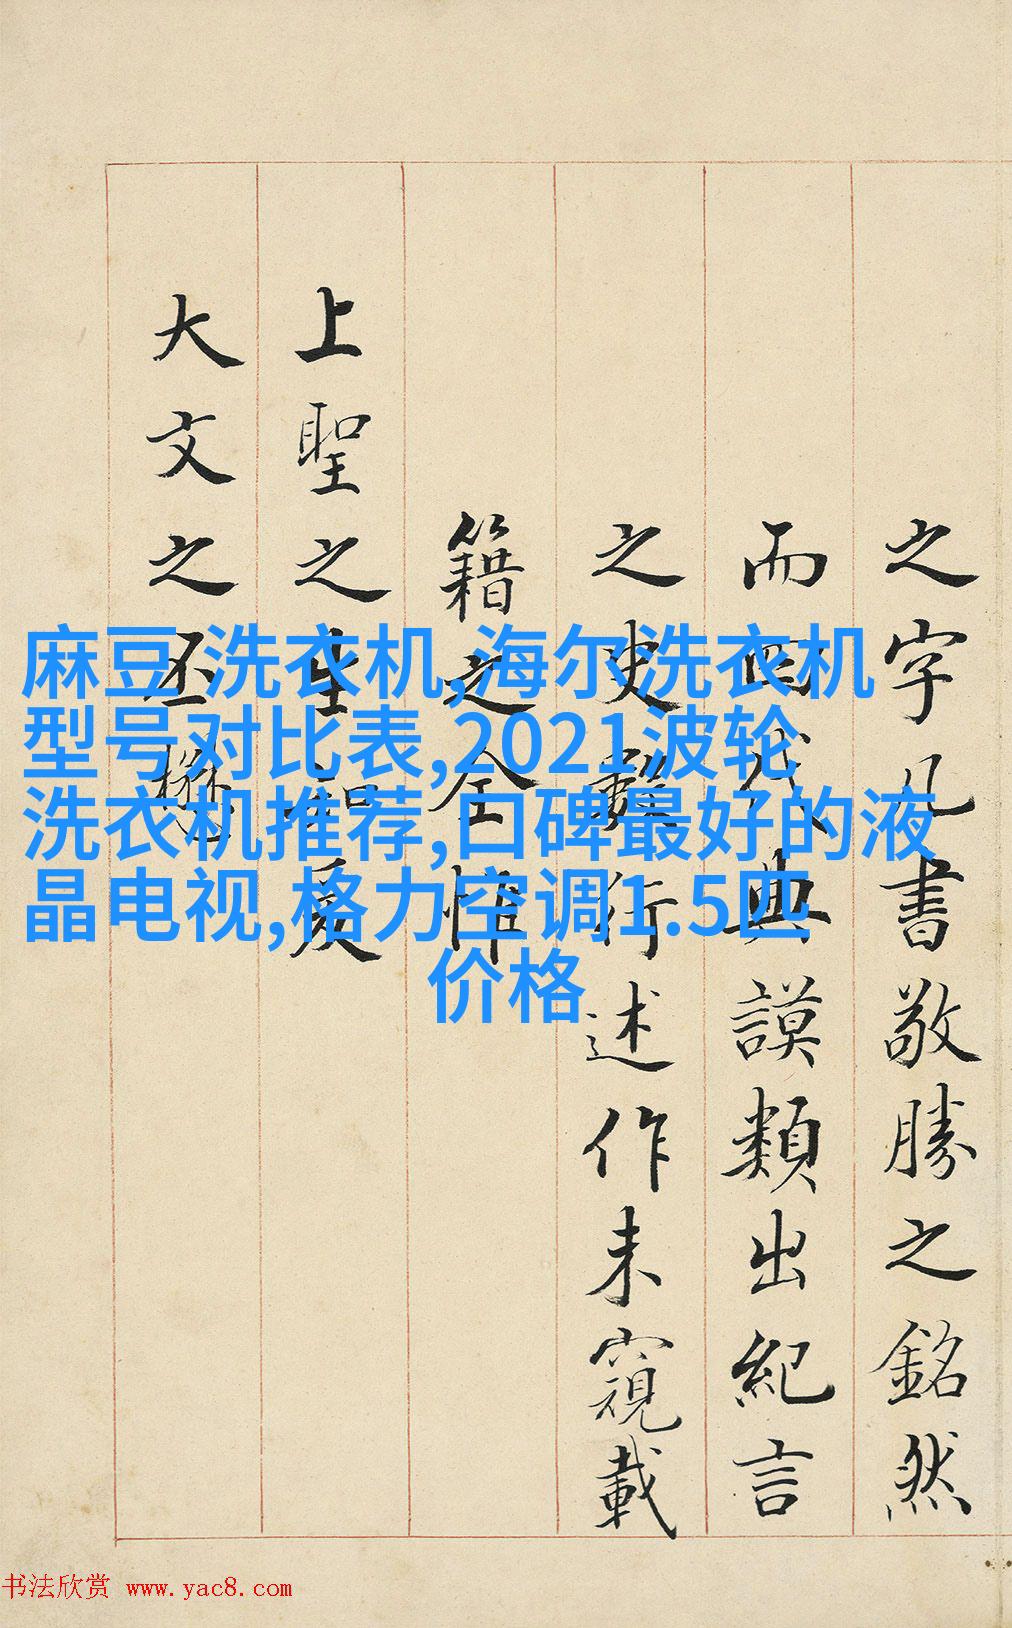 之字凡書敬勝之銘然
而四代典謨類出紀言
之史雜行述作未窺載
籍之全惟
上聖之生知爰
大文之丕懋
麻豆 洗衣机,海尔洗衣机
型号对比表,2021波轮
洗衣机推荐,口碑最好的液
晶电视,格力空调1.5匹
价格
书法欣赏 www.yac8.com